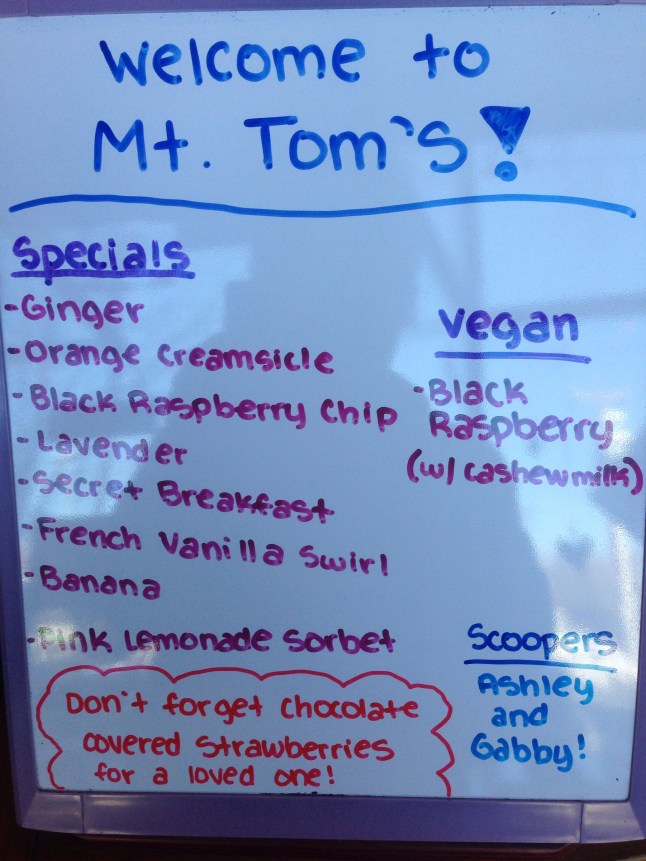 Welcome to
Mt. Tom's!
Specials
-Ginger
-Orange Creamsicle
-Black Raspberry Chip
-Lavender
-Secret Breakfast
-French Vanilla Swirl
-Banana
-Pink Lemonade Sorbet
Vegan
-Black
Raspberry
(w/ cashew milk)
Scoopers
Ashley
and
Gabby!
Don't forget chocolate
covered strawberries
for a loved one!